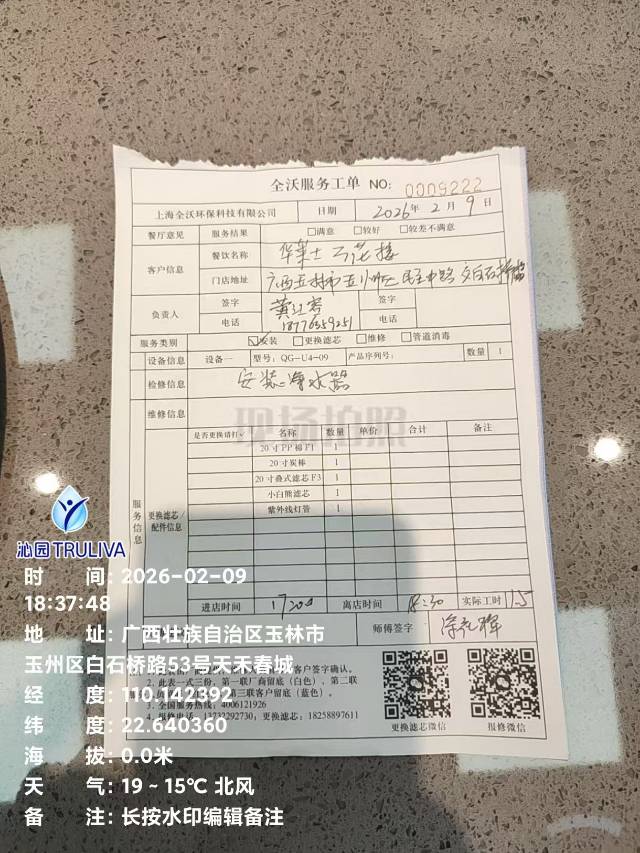 全沃服务工单 NO: 0009222
上海全沃环保科技有限公司 日期 2026年 2月 9日
餐厅意见 服务结果 □满意 □较好 □较差不满意
客户信息 餐饮名称 华莱士
门店地址 广西玉林市玉州区民主中路
负责人 签字 签字
电话 18776559251 电话
服务类别 ☑安装 □更换滤芯 □维修 □管道消毒
设备信息 设备一 型号: QG-U4-09 产品序列号: 数量 1
检修信息 安装净水器
维修信息
现场拍照
服务信息 更换滤芯/配件信息
是否更换请打✓ 名称 数量 单价 合计 备注
20寸PP棉F1 1
20寸炭棒 1
20寸叠式滤芯F3 1
小白熊滤芯 1
紫外线灯管 1
进店时间 离店时间 18:30 实际工时 1.5
师傅签字
客户签字确认。
2. 此表一式三份, 第一联厂商留底(白色), 第二联
第三联客户留底(蓝色)。
3. 全国服务热线: 4006121926
4. 报修电话: 13732292730; 更换滤芯: 18258897611
更换滤芯微信 报修微信
沁园TRULIVA
时 间: 2026-02-09
18:37:48
地 址: 广西壮族自治区玉林市
玉州区白石桥路53号天禾春城
经 度: 110.142392
纬 度: 22.640360
海 拔: 0.0米
天 气: 19 ~ 15℃ 北风
备 注: 长按水印编辑备注